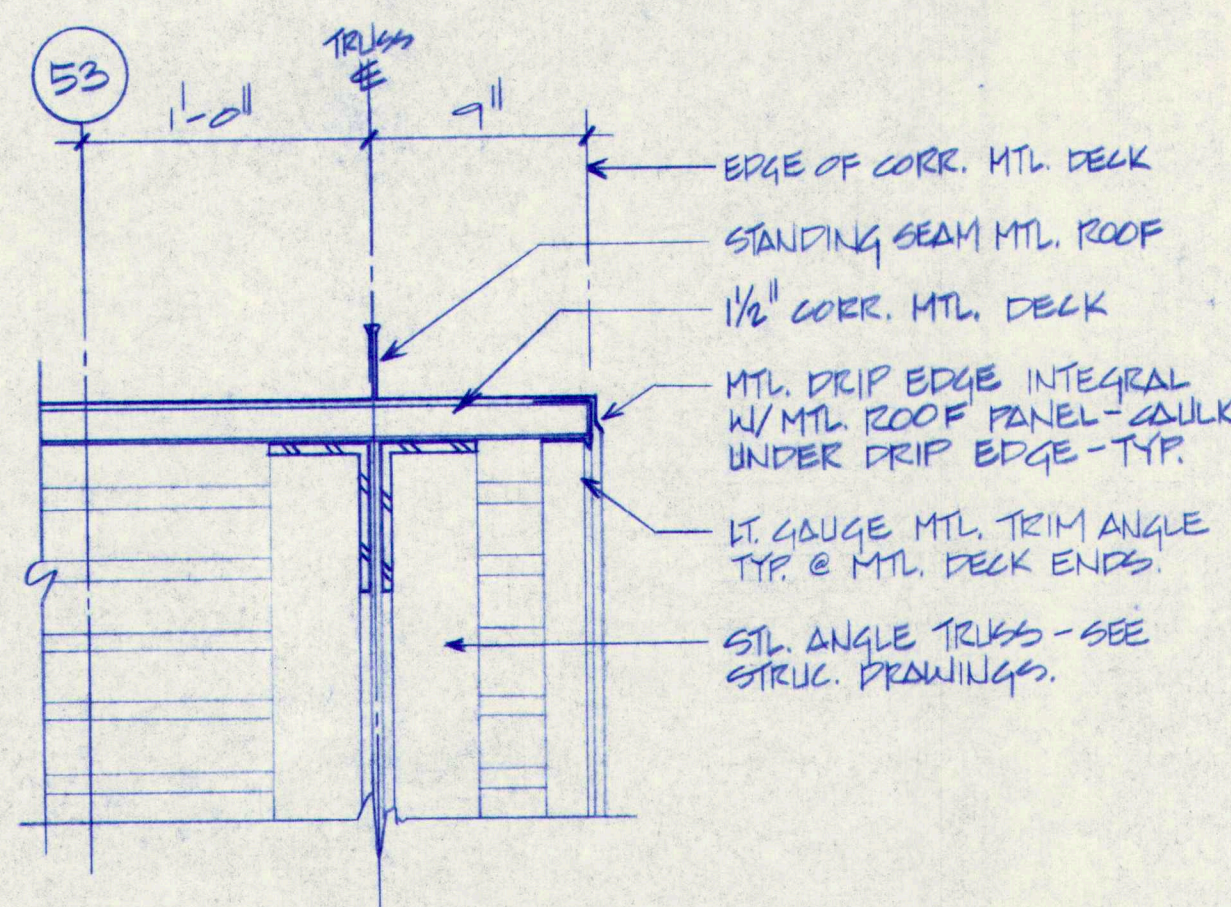 53
TRUSS
℄
1'-0"
9"
EDGE OF CORR. MTL. DECK
STANDING SEAM MTL. ROOF
1½" CORR. MTL. DECK
MTL. DRIP EDGE INTEGRAL
W/ MTL. ROOF PANEL - CAULK
UNDER DRIP EDGE - TYP.
LT. GAUGE MTL. TRIM ANGLE
TYP. @ MTL. DECK ENDS.
STL. ANGLE TRUSS - SEE
STRUC. DRAWINGS.